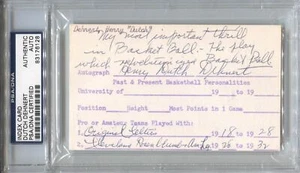 Dehnert, Henry "Dutch"
My most important thrill
in Basket Ball - The play
which revolutionized Basket Ball
Autograph Henry Dutch Dehnert
Past & Present Basketball Personalities
University of 19 19
Position Height Most Points in 1 Game
Pro or Amateur Teams Played With:
1. Original Celtics 1918 1928
2. Cleveland
INDEX CARD
DUTCH DEHNERT
PSA/DNA CERTIFIED
AUTHENTIC
AUTO
83178128
PSA/DNA